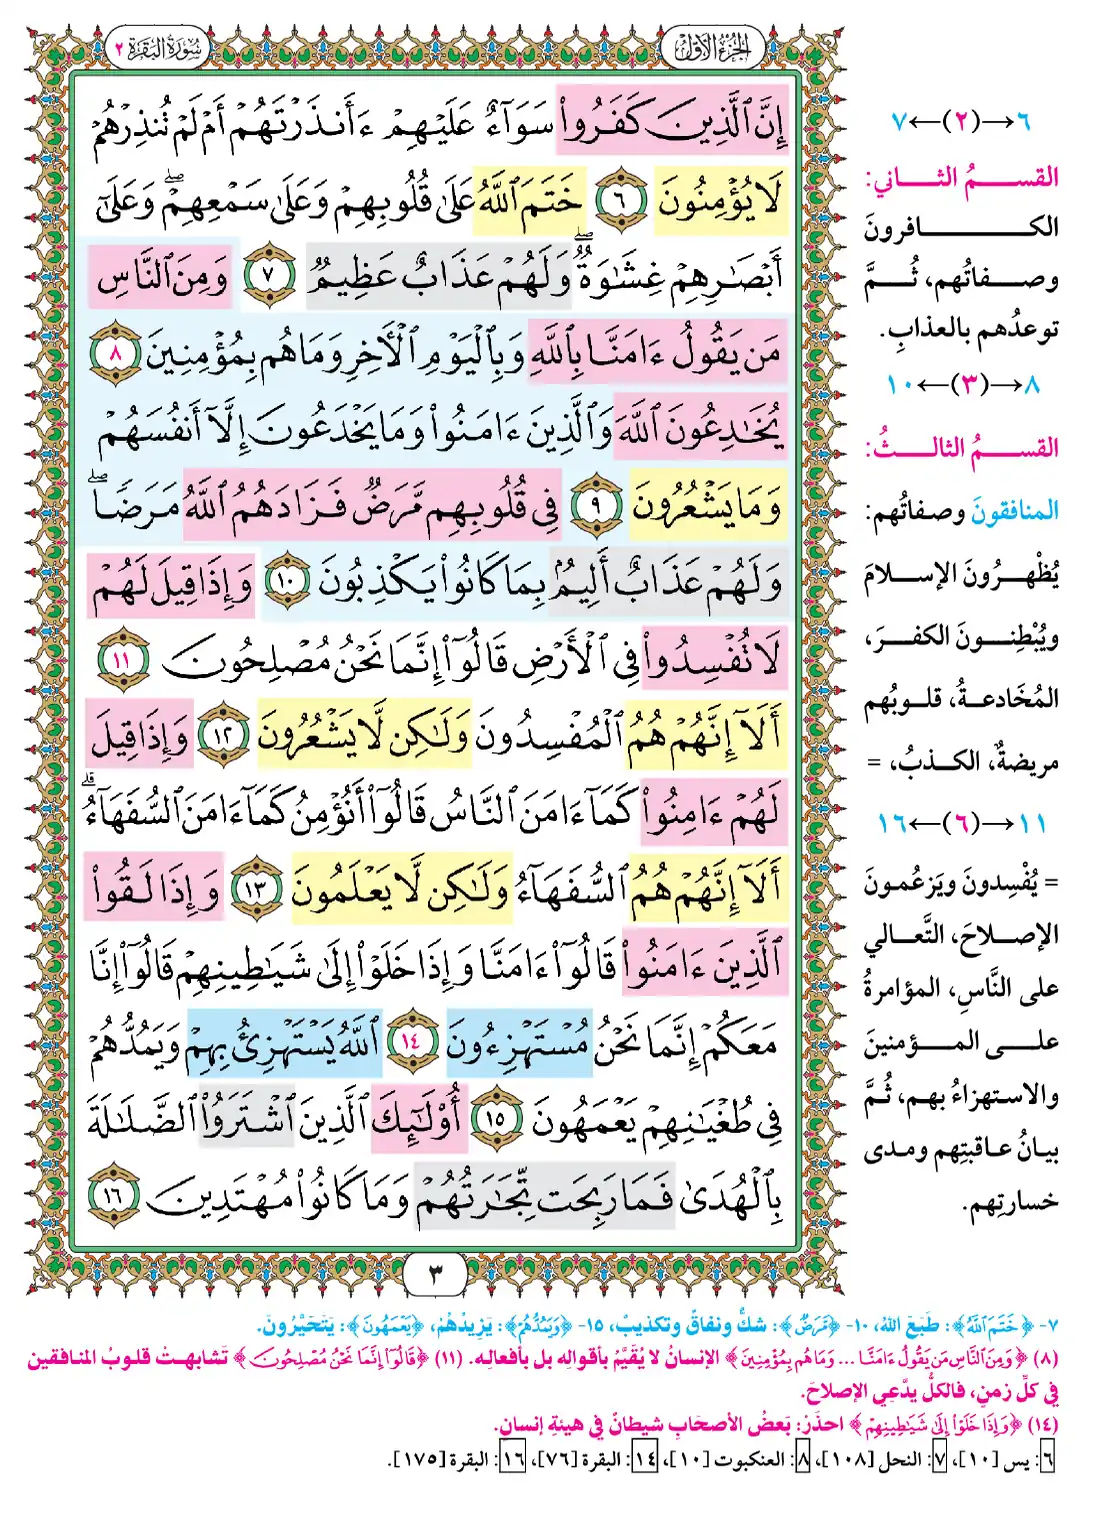 الجزء الأول
سورة البقرة ٢
إِنَّ ٱلَّذِينَ كَفَرُوا۟ سَوَآءٌ عَلَيْهِمْ ءَأَنذَرْتَهُمْ أَمْ لَمْ تُنذِرْهُمْ
لَا يُؤْمِنُونَ ٦ خَتَمَ ٱللَّهُ عَلَىٰ قُلُوبِهِمْ وَعَلَىٰ سَمْعِهِمْ ۖ وَعَلَىٰٓ
أَبْصَـٰرِهِمْ غِشَـٰوَةٌ ۖ وَلَهُمْ عَذَابٌ عَظِيمٌ ٧ وَمِنَ ٱلنَّاسِ
مَن يَقُولُ ءَامَنَّا بِٱللَّهِ وَبِٱلْيَوْمِ ٱلْـَٔاخِرِ وَمَا هُم بِمُؤْمِنِينَ ٨
يُخَـٰدِعُونَ ٱللَّهَ وَٱلَّذِينَ ءَامَنُوا۟ وَمَا يَخْدَعُونَ إِلَّآ أَنفُسَهُمْ
وَمَا يَشْعُرُونَ ٩ فِى قُلُوبِهِم مَّرَضٌ فَزَادَهُمُ ٱللَّهُ مَرَضًا ۖ
وَلَهُمْ عَذَابٌ أَلِيمٌۢ بِمَا كَانُوا۟ يَكْذِبُونَ ١٠ وَإِذَا قِيلَ لَهُمْ
لَا تُفْسِدُوا۟ فِى ٱلْأَرْضِ قَالُوٓا۟ إِنَّمَا نَحْنُ مُصْلِحُونَ ١١
أَلَآ إِنَّهُمْ هُمُ ٱلْمُفْسِدُونَ وَلَـٰكِن لَّا يَشْعُرُونَ ١٢ وَإِذَا قِيلَ
لَهُمْ ءَامِنُوا۟ كَمَآ ءَامَنَ ٱلنَّاسُ قَالُوٓا۟ أَنُؤْمِنُ كَمَآ ءَامَنَ ٱلسُّفَهَآءُ ۗ
أَلَآ إِنَّهُمْ هُمُ ٱلسُّفَهَآءُ وَلَـٰكِن لَّا يَعْلَمُونَ ١٣ وَإِذَا لَقُوا۟
ٱلَّذِينَ ءَامَنُوا۟ قَالُوٓا۟ ءَامَنَّا وَإِذَا خَلَوْا۟ إِلَىٰ شَيَـٰطِينِهِمْ قَالُوٓا۟ إِنَّا
مَعَكُمْ إِنَّمَا نَحْنُ مُسْتَهْزِءُونَ ١٤ ٱللَّهُ يَسْتَهْزِئُ بِهِمْ وَيَمُدُّهُمْ
فِى طُغْيَـٰنِهِمْ يَعْمَهُونَ ١٥ أُو۟لَـٰٓئِكَ ٱلَّذِينَ ٱشْتَرَوُا۟ ٱلضَّلَـٰلَةَ
بِٱلْهُدَىٰ فَمَا رَبِحَت تِّجَـٰرَتُهُمْ وَمَا كَانُوا۟ مُهْتَدِينَ ١٦
٣
٦→(٢)←٧
القسمُ الثاني:
الكافرونَ
وصفاتُهم، ثُمَّ
توعدُهم بالعذابِ.
٨→(٣)←١٠
القسمُ الثالثُ:
المنافقونَ وصفاتُهم:
يُظْهرُونَ الإسلامَ
ويُبْطِنونَ الكفرَ،
المُخَادعةُ، قلوبُهم
مريضةٌ، الكذبُ، =
١١→(٦)←١٦
= يُفْسِدونَ ويَزعُمونَ
الإصلاحَ، التَّعالي
على النَّاسِ، المؤامرةُ
على المؤمنينَ
والاستهزاءُ بهم، ثُمَّ
بيانُ عاقبتِهم ومدى
خسارتِهم.
٧- ﴿خَتَمَ ٱللَّهُ﴾: طَبَعَ اللهُ، ١٠- ﴿مَّرَضٌ﴾: شكٌّ ونفاقٌ وتكذيبٌ، ١٥- ﴿وَيَمُدُّهُمْ﴾: يَزِيدُهُمْ، ﴿يَعْمَهُونَ﴾: يَتَحَيَّرُونَ.
(٨) ﴿وَمِنَ ٱلنَّاسِ مَن يَقُولُ ءَامَنَّا ... وَمَا هُم بِمُؤْمِنِينَ﴾ الإنسانُ لا يُقَيَّمُ بأقوالِه بل بأفعالِه. (١١) ﴿قَالُوٓا۟ إِنَّمَا نَحْنُ مُصْلِحُونَ﴾ تَشابهتْ قلوبُ المنافقين
في كلِّ زمنٍ، فالكلُّ يدَّعِي الإصلاحَ.
(١٤) ﴿وَإِذَا خَلَوْا۟ إِلَىٰ شَيَـٰطِينِهِمْ﴾ احذَرْ: بَعضُ الأصحَابِ شيطانٌ في هيئةِ إنسانٍ.
٦: يس [١٠]، ٧: النحل [١٠٨]، ٨: العنكبوت [١٠]، ١٤: البقرة [٧٦]، ١٦: البقرة [١٧٥].